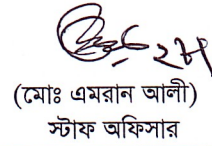 (মোঃ এমরান আলী)
স্টাফ অফিসার